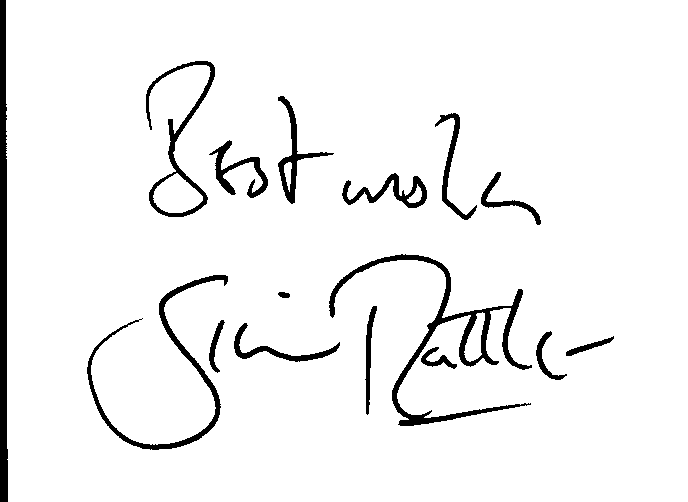 Best wishes
Simon Rattle